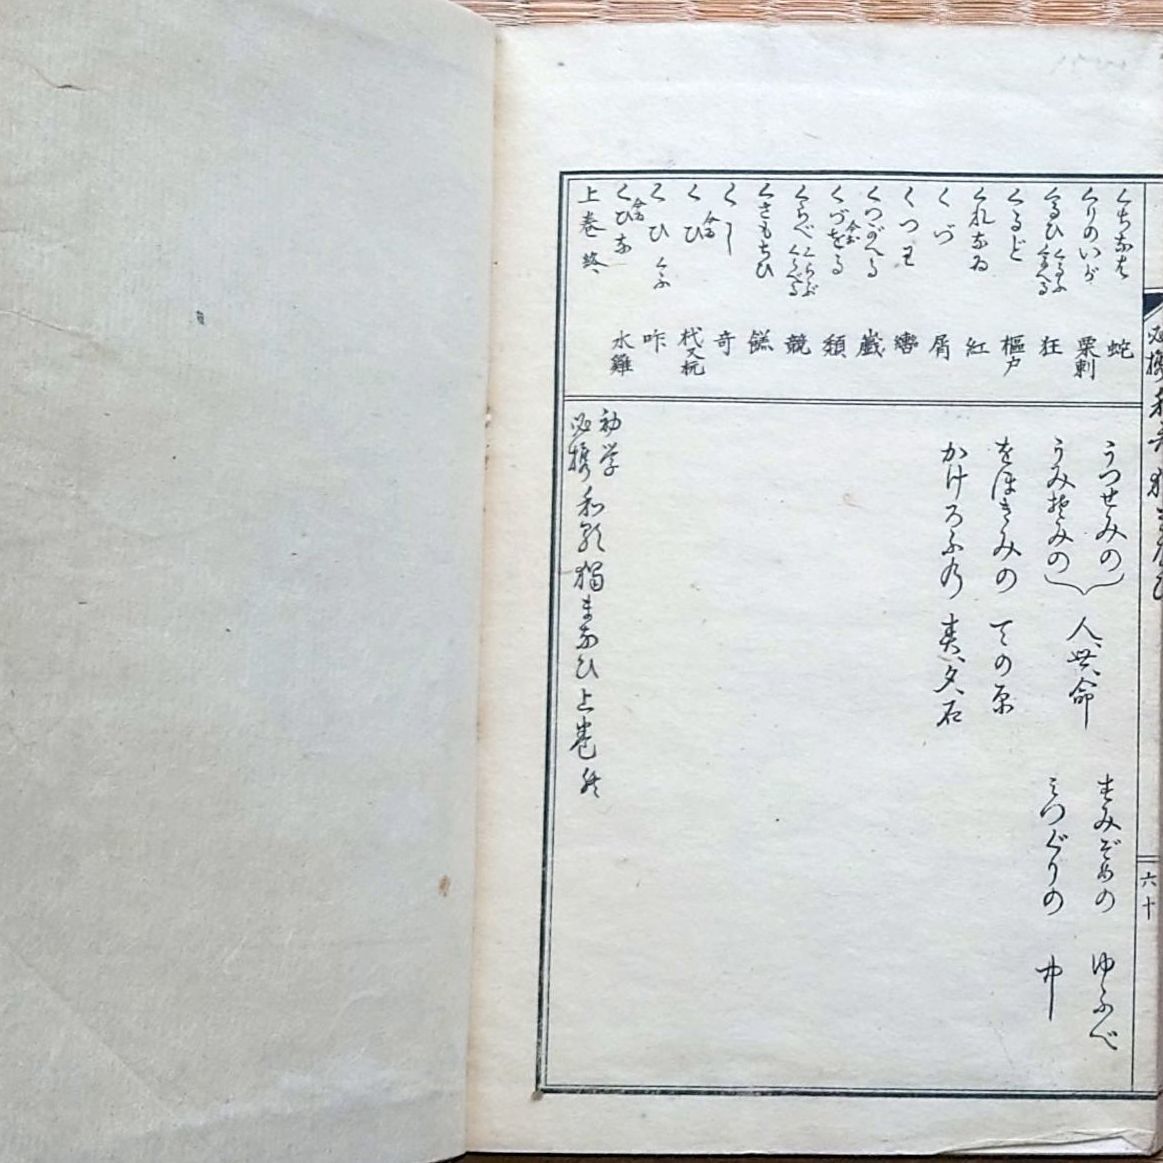 くちなは 蛇
くりのいが 栗刺
くるひ くるふ くるへる 狂
くるど 樞戸
くれなゐ 紅
くづ 屑
くつわ 轡
くつがへる 戯
くづをる 頽
くらべ くらぶ くらべる 競
くさもちひ
くし 奇
くひ 杙又杭
くひ くふ 咋
くひな 水雞
上巻 終
うつせみの
うみせみの
人、世、命
をほきみの みの原
かけろふの 春、夕、石
すみぞめの ゆふべ
みつぐりの 中
初学
必携
和歌獨まなひ上巻終
六十